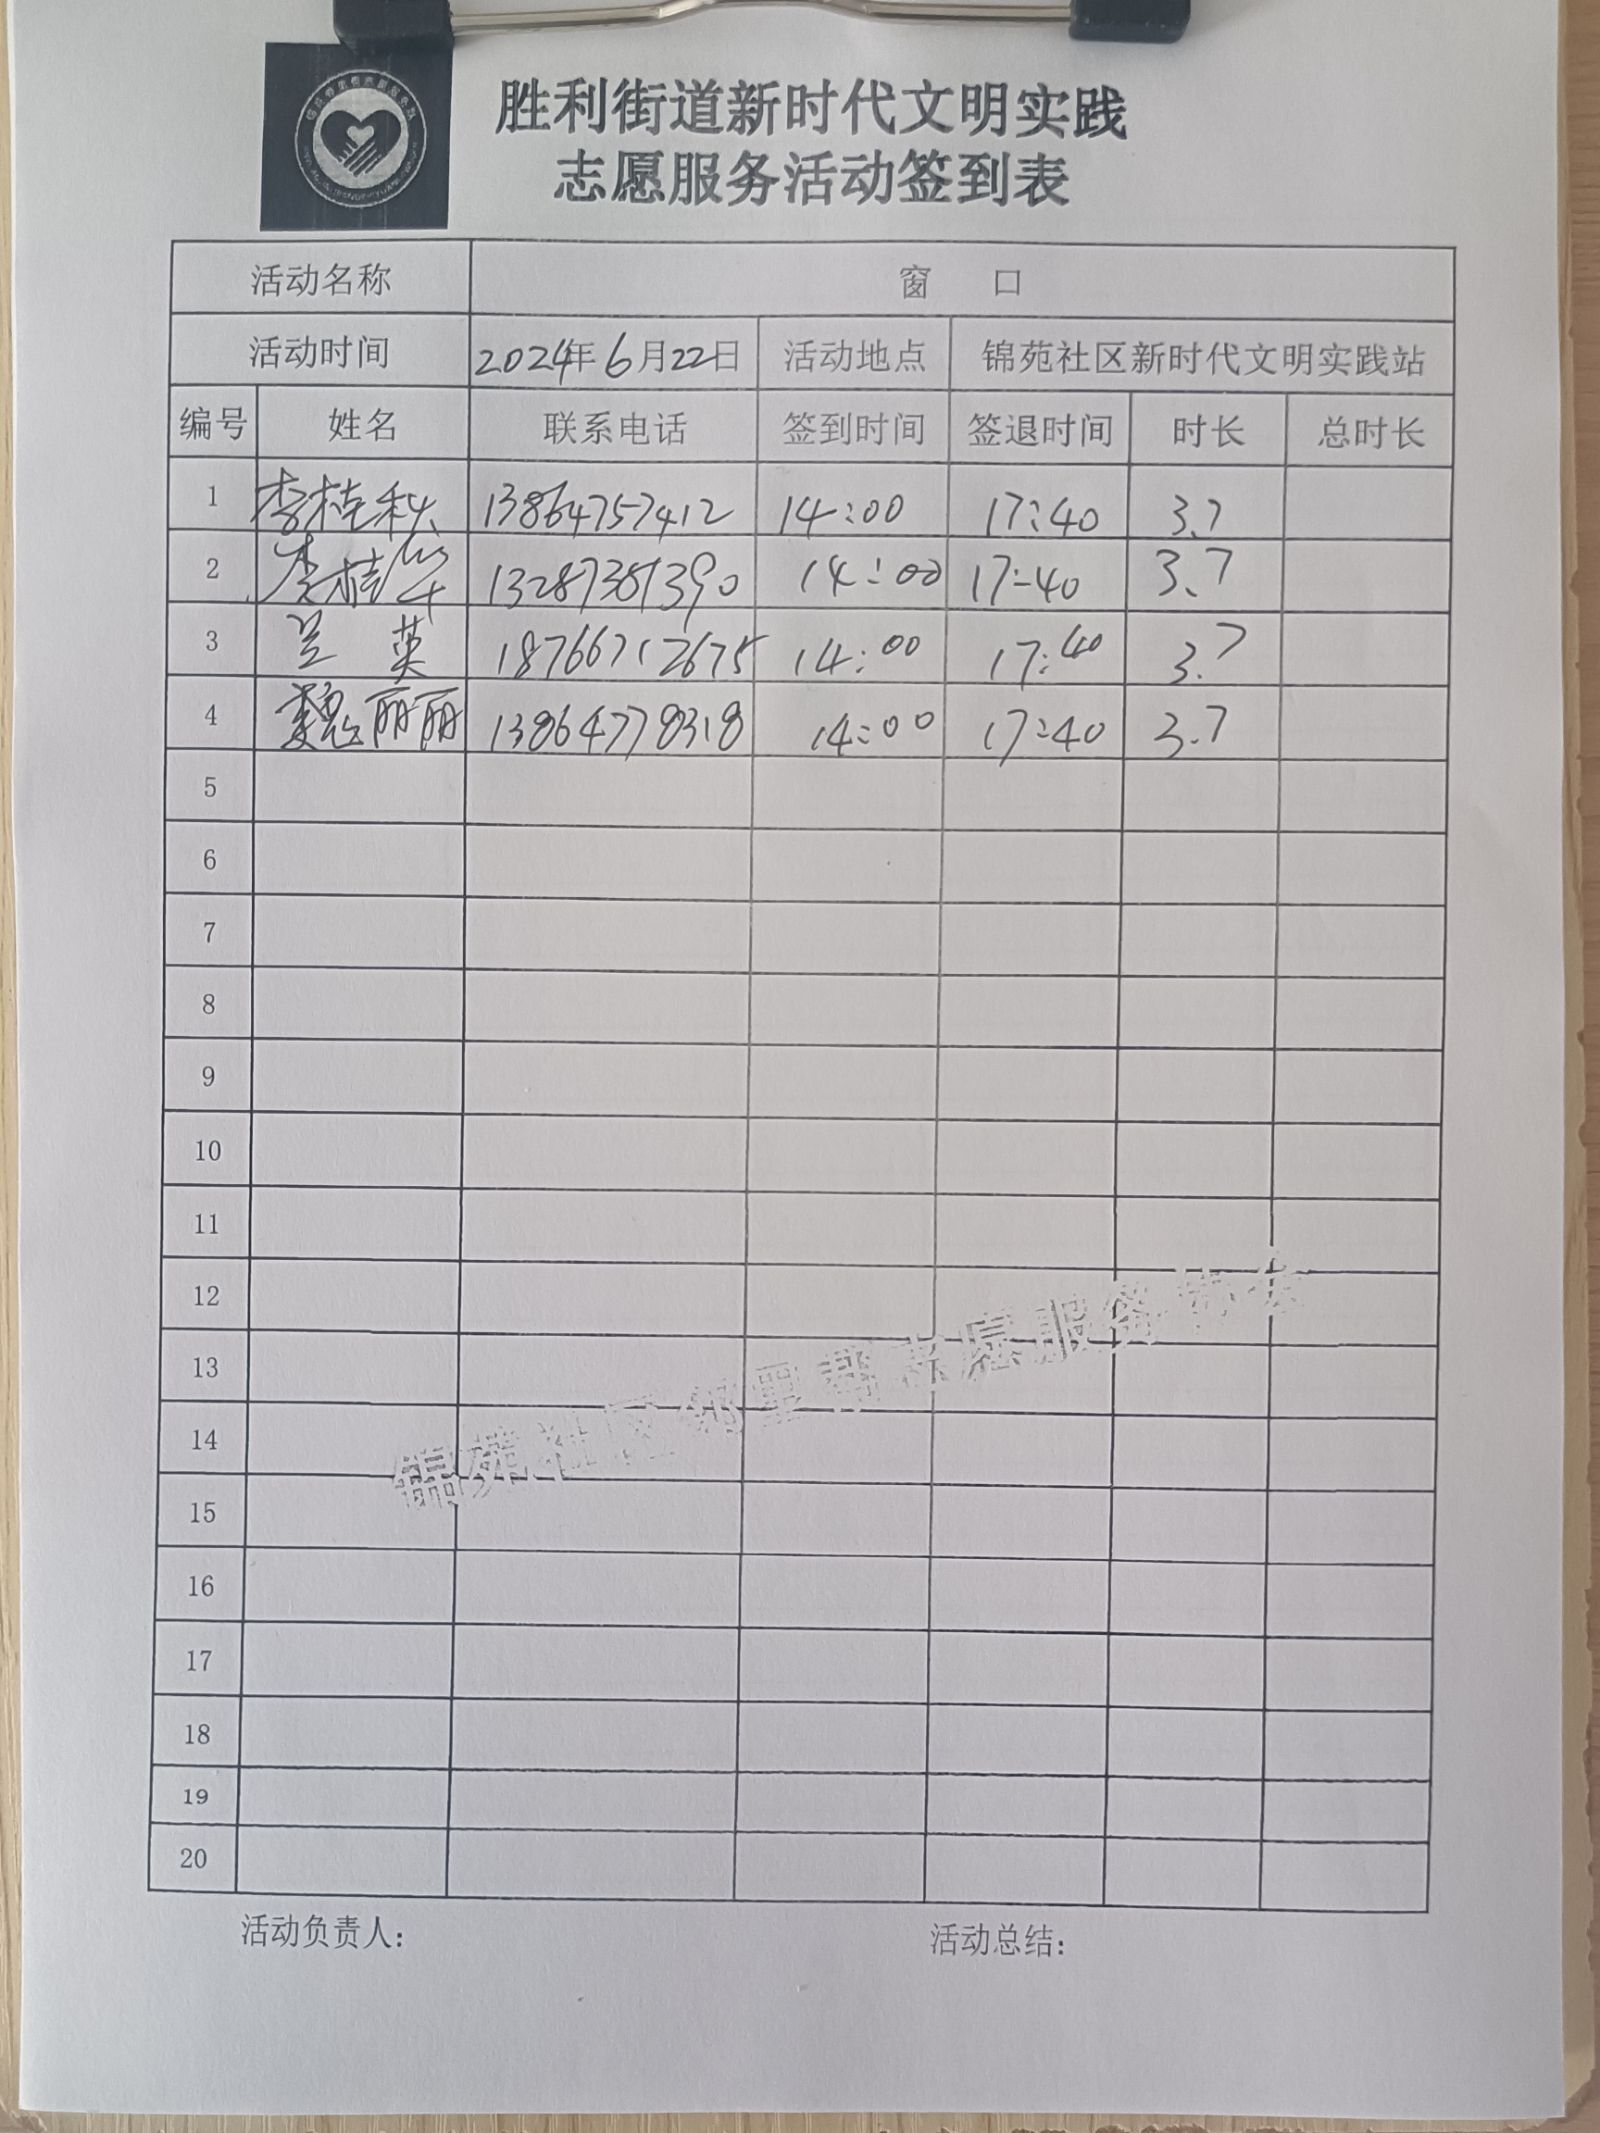 胜利街道新时代文明实践
志愿服务活动签到表
活动名称 窗 口
活动时间 2024年6月22日 活动地点 锦苑社区新时代文明实践站
编号 姓名 联系电话 签到时间 签退时间 时长 总时长
1 李桂秋 13864757412 14:00 17:40 3.7
2 李桂华 13287381390 14:00 17:40 3.7
3 兰 英 18766712675 14:00 17:40 3.7
4 魏丽丽 13864778318 14:00 17:40 3.7
5
6
7
8
9
10
11
12
13
14
15
16
17
18
19
20
锦苑社区邻里帮志愿服务
活动负责人: 活动总结: